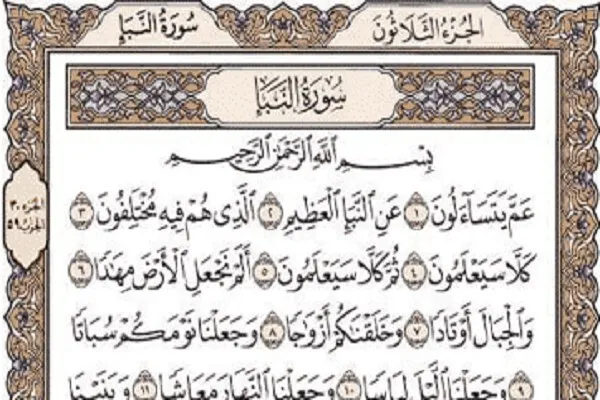 الجزء الثلاثون
سورة النبإ
سورة النبإ
بسم الله الرحمن الرحيم
عم يتساءلون ١ عن النبإ العظيم ٢ الذي هم فيه مختلفون ٣
كلا سيعلمون ٤ ثم كلا سيعلمون ٥ ألم نجعل الأرض مهدا ٦
والجبال أوتادا ٧ وخلقنكم أزوجا ٨ وجعلنا نومكم سباتا
٩ وجعلنا الليل لباسا ١٠ وجعلنا النهار معاشا ١١ وبنينا
الجزء ٣٠
الحزب ٥٩